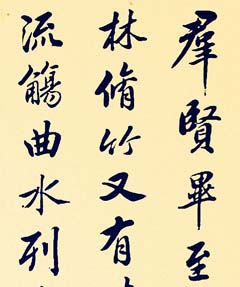 羣賢畢至
林脩竹又有
流觴曲水列